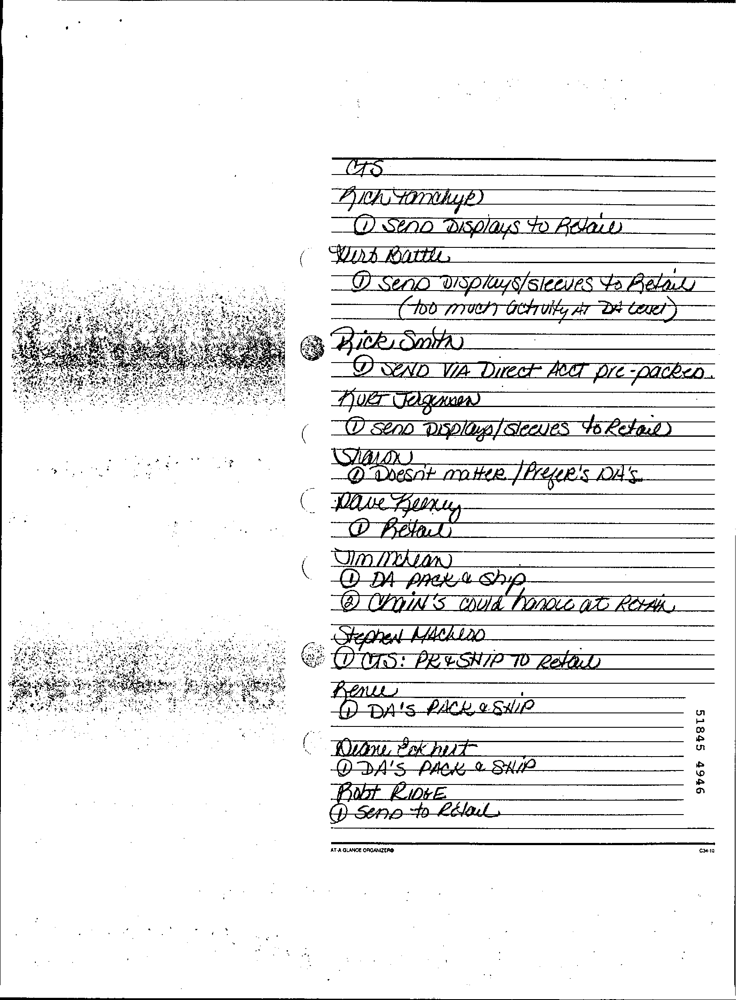 CTS
Rich Yanchyk
① Send Displays to Retail
Herb Battle
① Send Displays/sleeves to Retail
(too much activity at DA level)
Rick Smith
① SEND VIA Direct Acct pre-packed.
Kurt Jorgensen
① Send Displays/sleeves to Retail
Sharon
① Doesn't matter / Prefer's DA's
Dave Keeney
① Retail
Jim McLean
① DA pack & ship
② Chain's could handle at Retail
Stephen
① CTS: PK & SHIP TO Retail
Renee
① DA'S PACK & SHIP
Diane Eckhert
① DA'S PACK & SHIP
Robt RIDGE
① Send to Retail
51845 4946
AT-A-GLANCE ORGANIZER®
C34-10